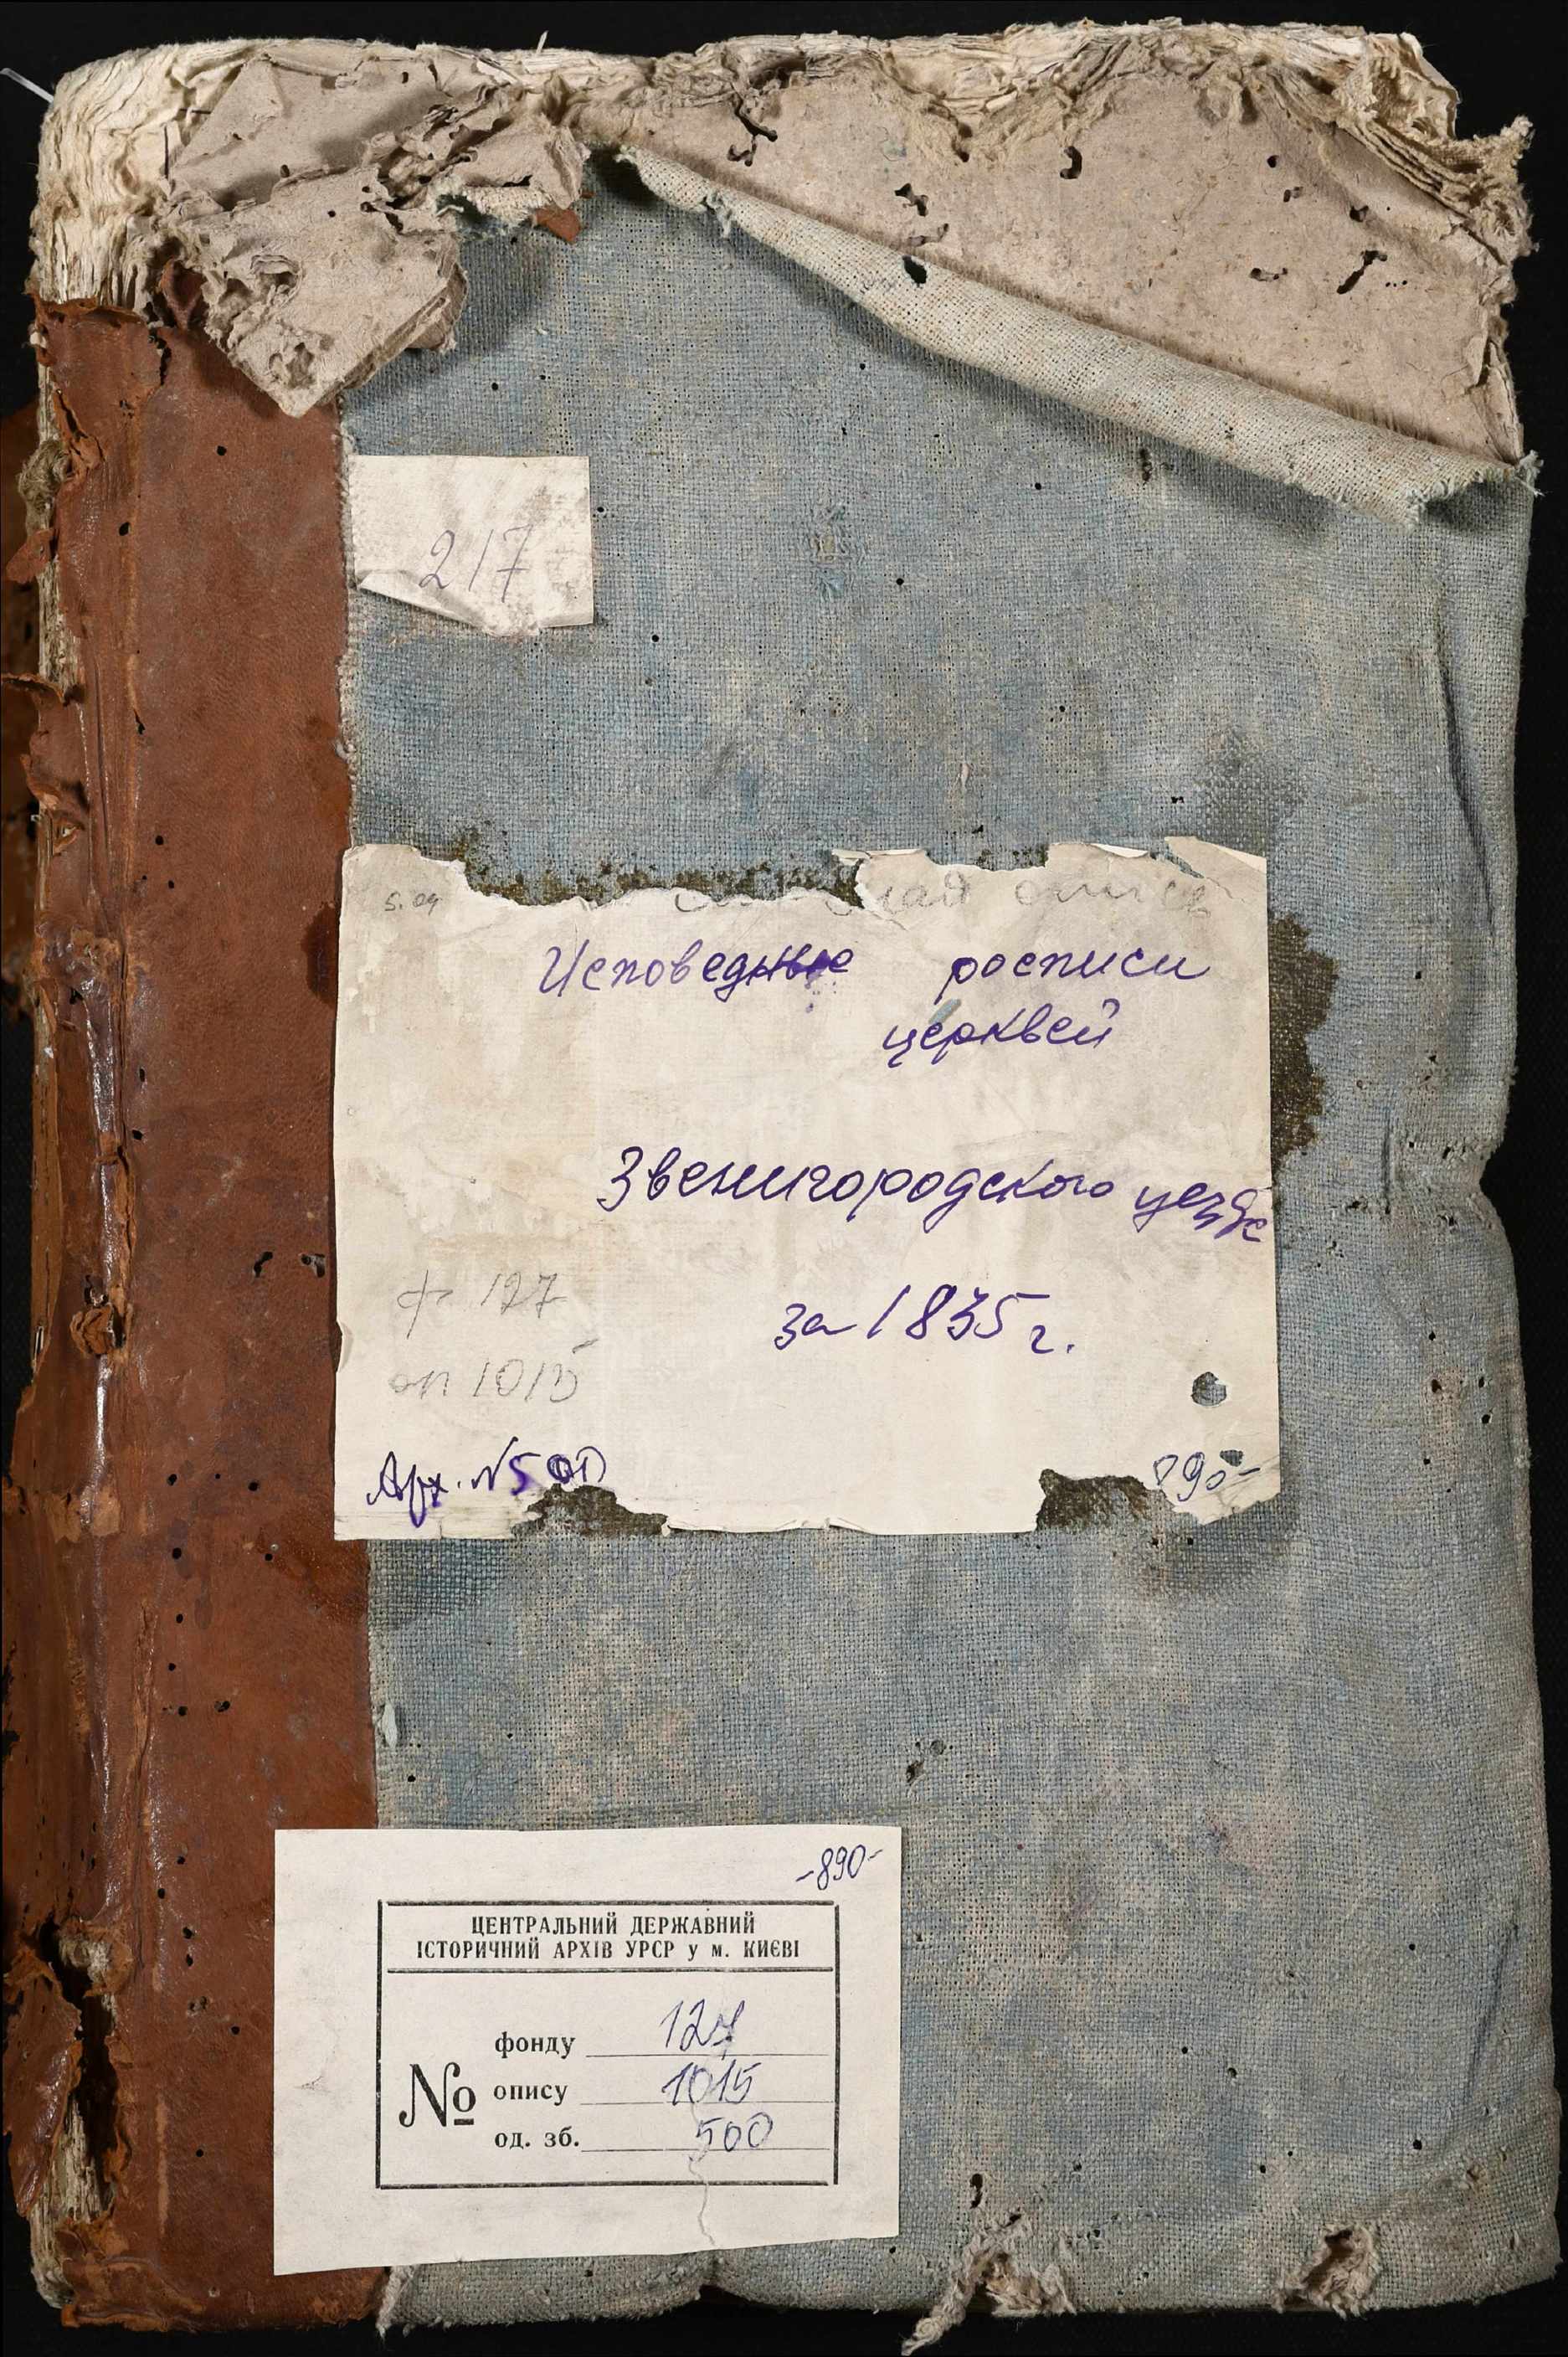 217
Исповедные росписи
церквей
Звенигородского уезда
за 1835 г.
ф 127
оп 1015
Арх. №500
890-
-890-
ЦЕНТРАЛЬНИЙ ДЕРЖАВНИЙ
ІСТОРИЧНИЙ АРХІВ УРСР у м. КИЄВІ
№
фонду 127
опису 1015
од. зб. 500